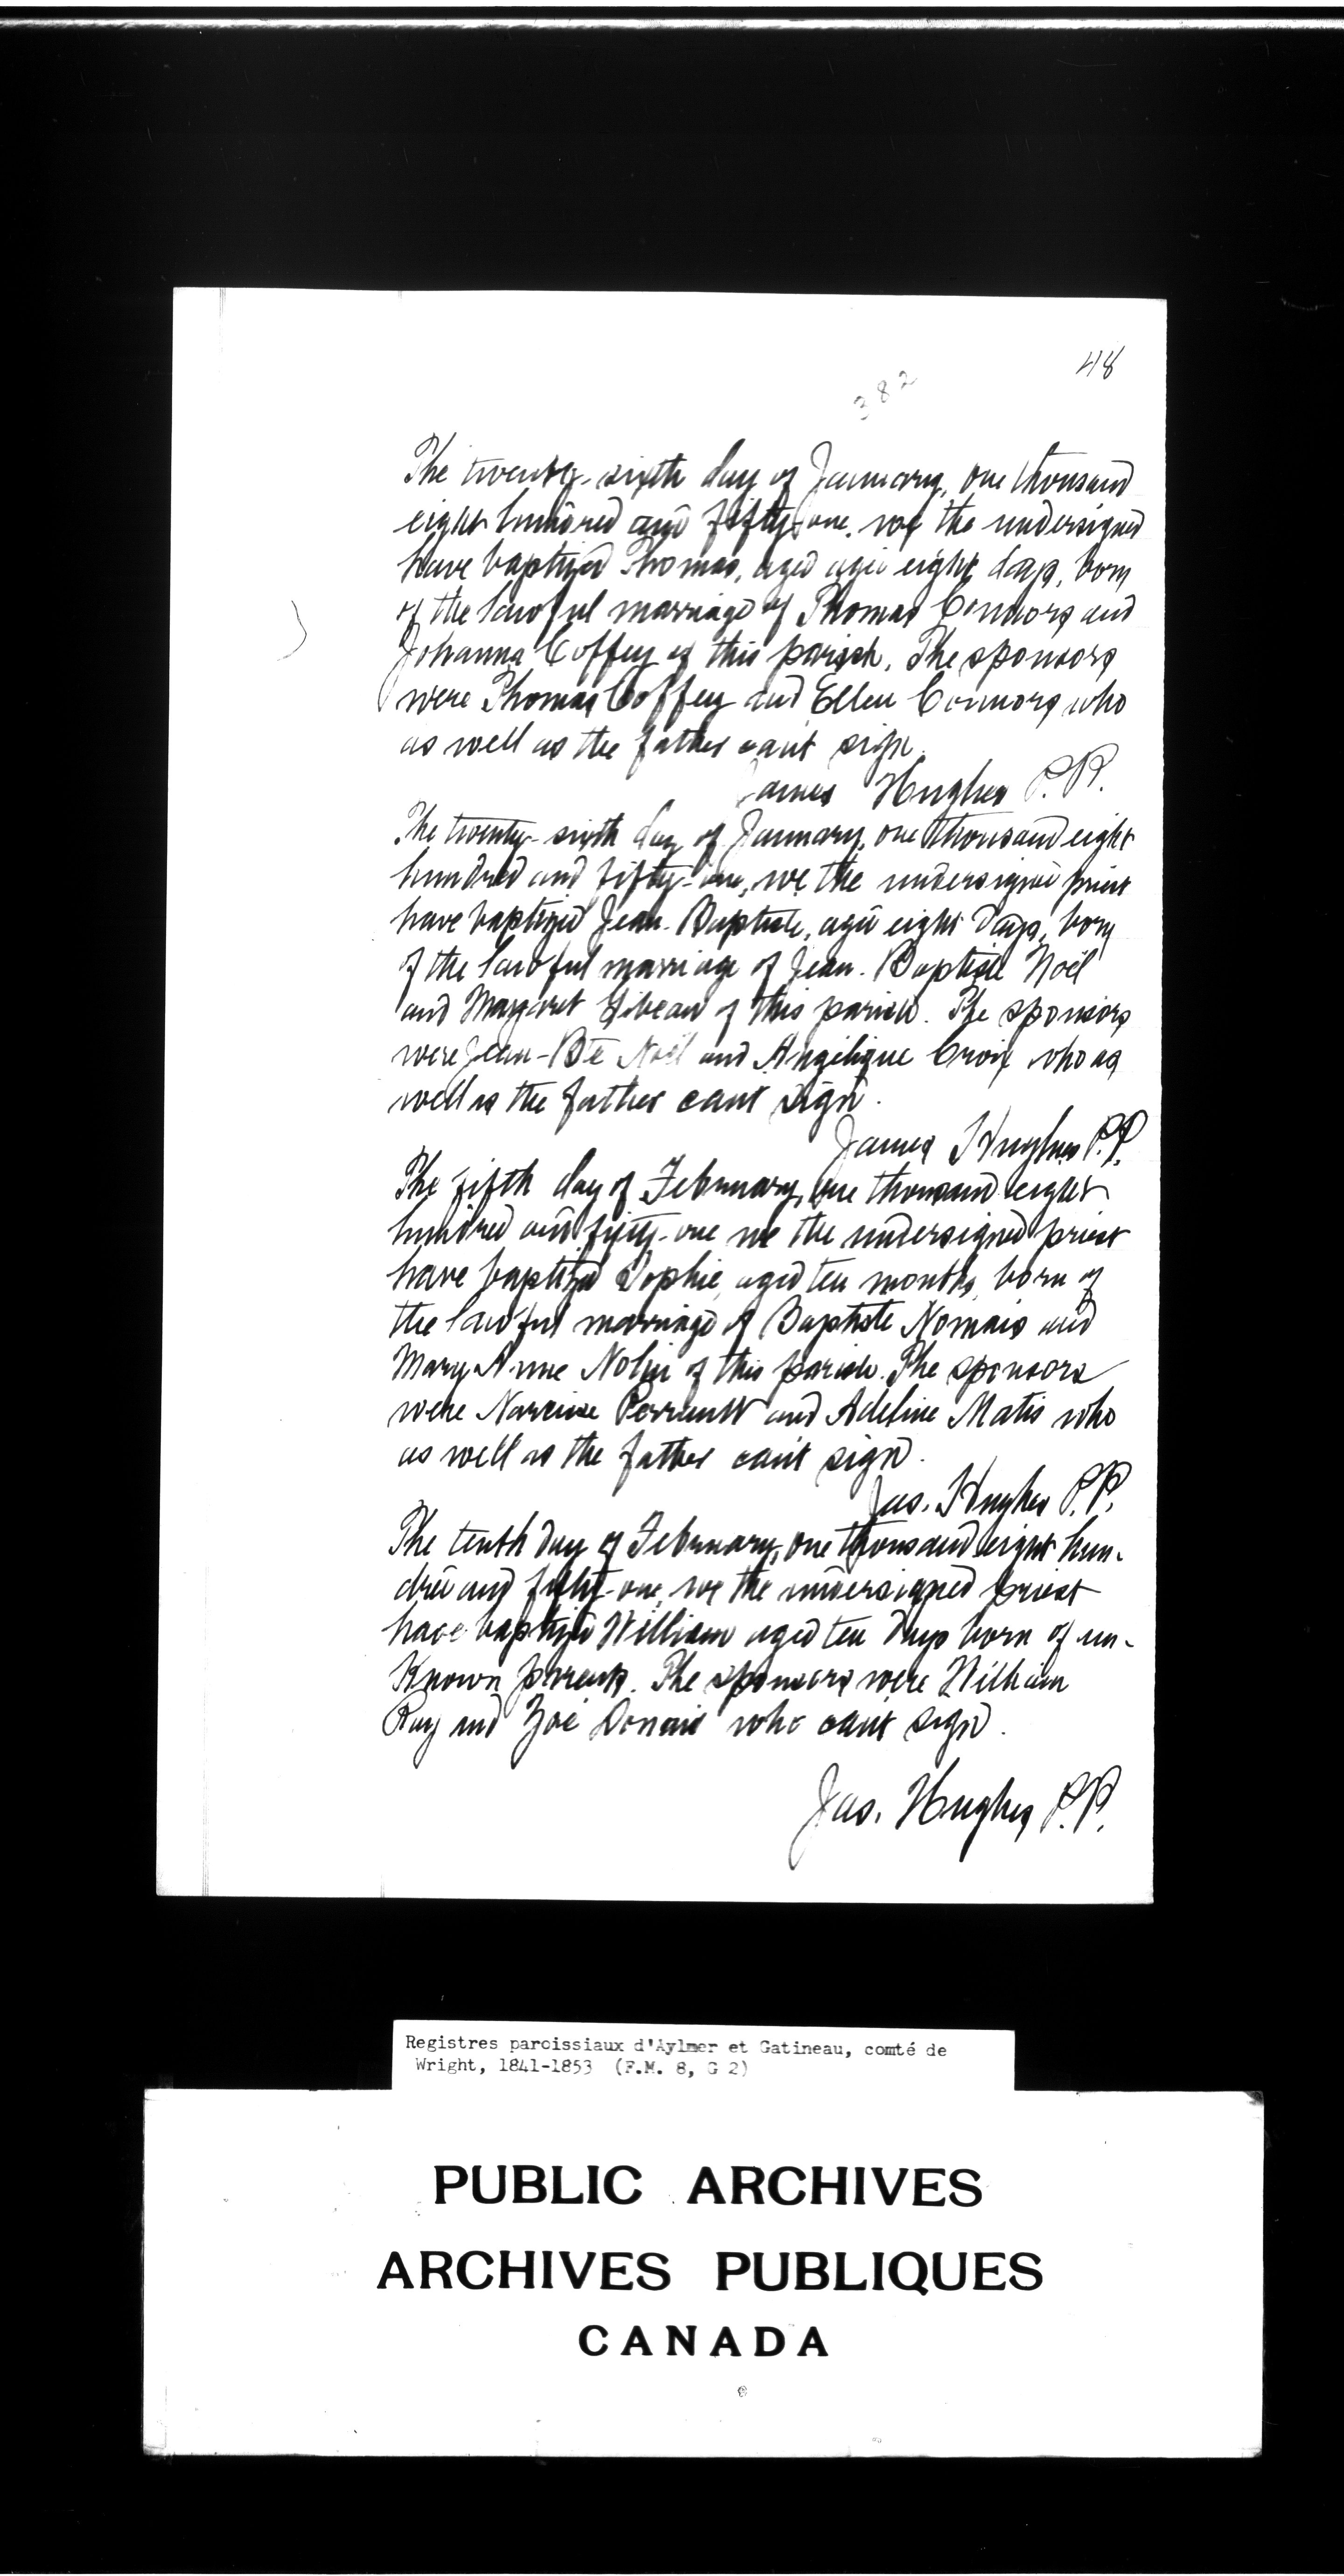 48
382
The twenty-sixth day of January, one thousand
eight hundred and fifty-one, we the undersigned
have baptized Thomas, aged aged eight days, born
of the lawful marriage of Thomas Connors and
Johanna Coffey of this parish. The sponsors
were Thomas Coffey and Ellen Connors who
as well as the father can't sign.
James Hughes P.P.
The twenty-sixth day of January, one thousand eight
hundred and fifty-one, we the undersigned priest
have baptized Jean-Baptiste, aged eight days, born
of the lawful marriage of Jean-Baptiste Noël
and Margaret of this parish. The sponsors
were Jean-Bte Noël and Angélique Croix who as
well as the father cant sign.
James Hughes P.P.
The fifth day of February, one thousand eight
hundred and fifty-one we the undersigned priest
have baptized Sophie, aged ten months, born of
the lawful marriage of Baptiste Nomais and
Mary Anne Nolin of this parish. The sponsors
were Narcisse Perrault and Adeline Matis who
as well as the father can't sign.
Jas. Hughes P.P.
The tenth day of February, one thousand eight hun-
dred and fifty-one, we the undersigned priest
have baptized William aged ten days born of un-
known parents. The sponsors were William
Ray and Zoé who can't sign.
Jas. Hughes P.P.
Registres paroissiaux d'Aylmer et Gatineau, comté de
Wright, 1841-1853 (F.M. 8, G 2)
PUBLIC ARCHIVES
ARCHIVES PUBLIQUES
CANADA